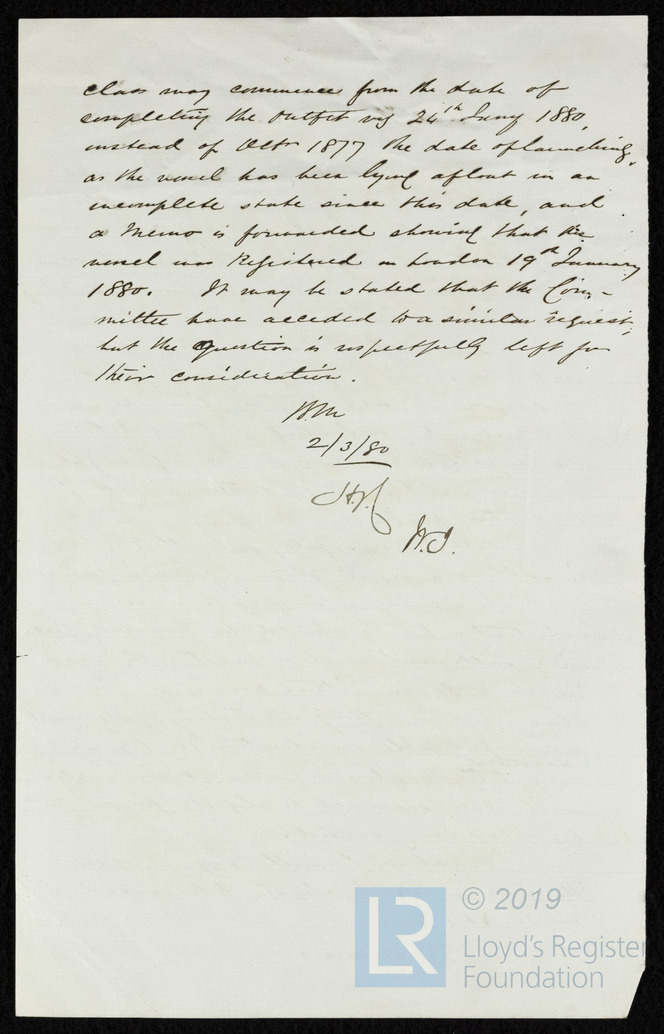 class may commence from the date of
completing the Outfit viz 24th Jany 1880,
instead of Octr 1877 the date of launching,
as the vessel has been lying afloat in an
incomplete state since this date, and
a Memo is forwarded showing that the
vessel was Registered in London 19th January
1880. It may be stated that the Com-
mittee have acceded to a similar request,
but the question is respectfully left for
their consideration.
2/3/80
© 2019
LR
Lloyd's Register
Foundation